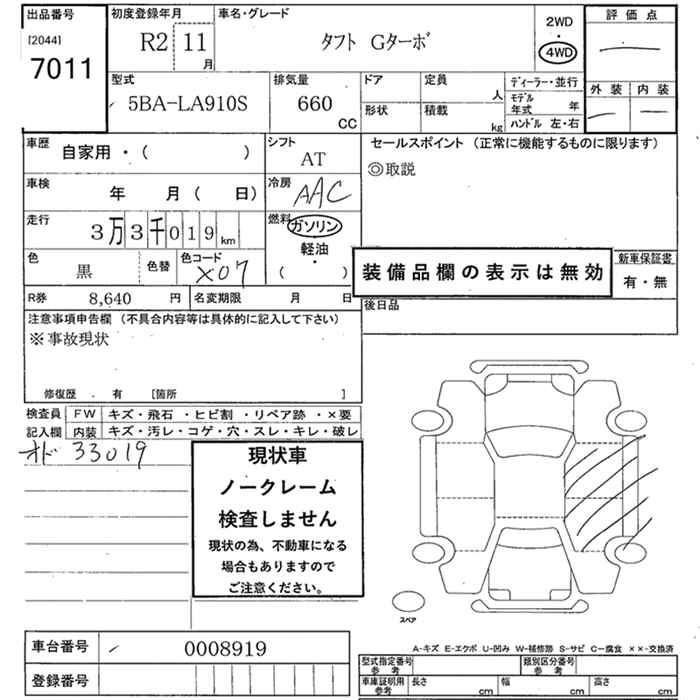 出品番号
[2044]
7011
初度登録年月
R2 11
月
車名・グレード
タフト Gターボ
2WD
・
4WD
評価点
外装 内装
型式
5BA-LA910S
排気量
660
CC
ドア
定員
人
形状
積載
kg
ディーラー・並行
モデル
年式 年
ハンドル 左・右
車歴
自家用・( )
シフト
AT
車検
年 月( 日)
冷房
AAC
走行
3万3千019km
燃料
ガソリン
軽油
・
( )
色
黒
色替
色コード
X07
R券 8,640 円
名変期限 月 日
セールスポイント (正常に機能するものに限ります)
◎取説
装備品欄の表示は無効
新車保証書
有・無
後日品
注意事項申告欄 (不具合内容等は具体的に記入して下さい)
※事故現状
修復歴 . 有 [箇所 ]
検査員
記入欄
FW キズ・飛石・ヒビ割・リペア跡・×要
内装 キズ・汚レ・コゲ・穴・スレ・キレ・破レ
オド 33019
現状車
ノークレーム
検査しません
現状の為、不動車になる
場合もありますので
ご注意ください。
スペア
A-キズ E-エクボ U-凹み W-補修跡 S-サビ C-腐食 ××-交換済
車台番号 0008919
登録番号
型式指定番号
参考
類別区分番号
参考
車庫証明用
参考
長さ cm 幅 cm 高さ cm